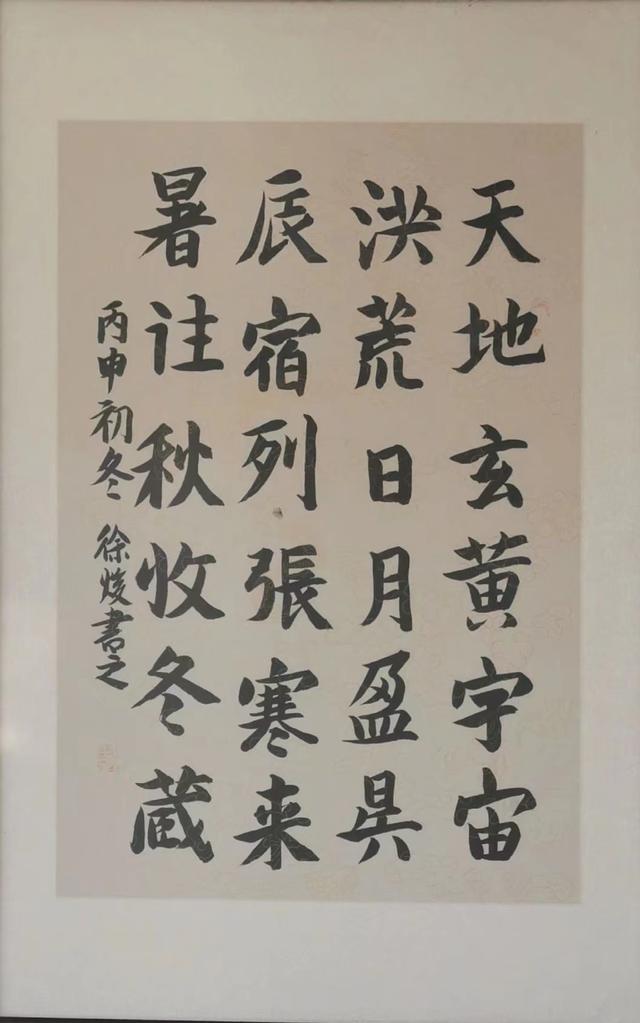 天地玄黄宇宙
洪荒日月盈昃
辰宿列張寒来
暑往秋收冬蔵
丙申初冬 徐焌書之